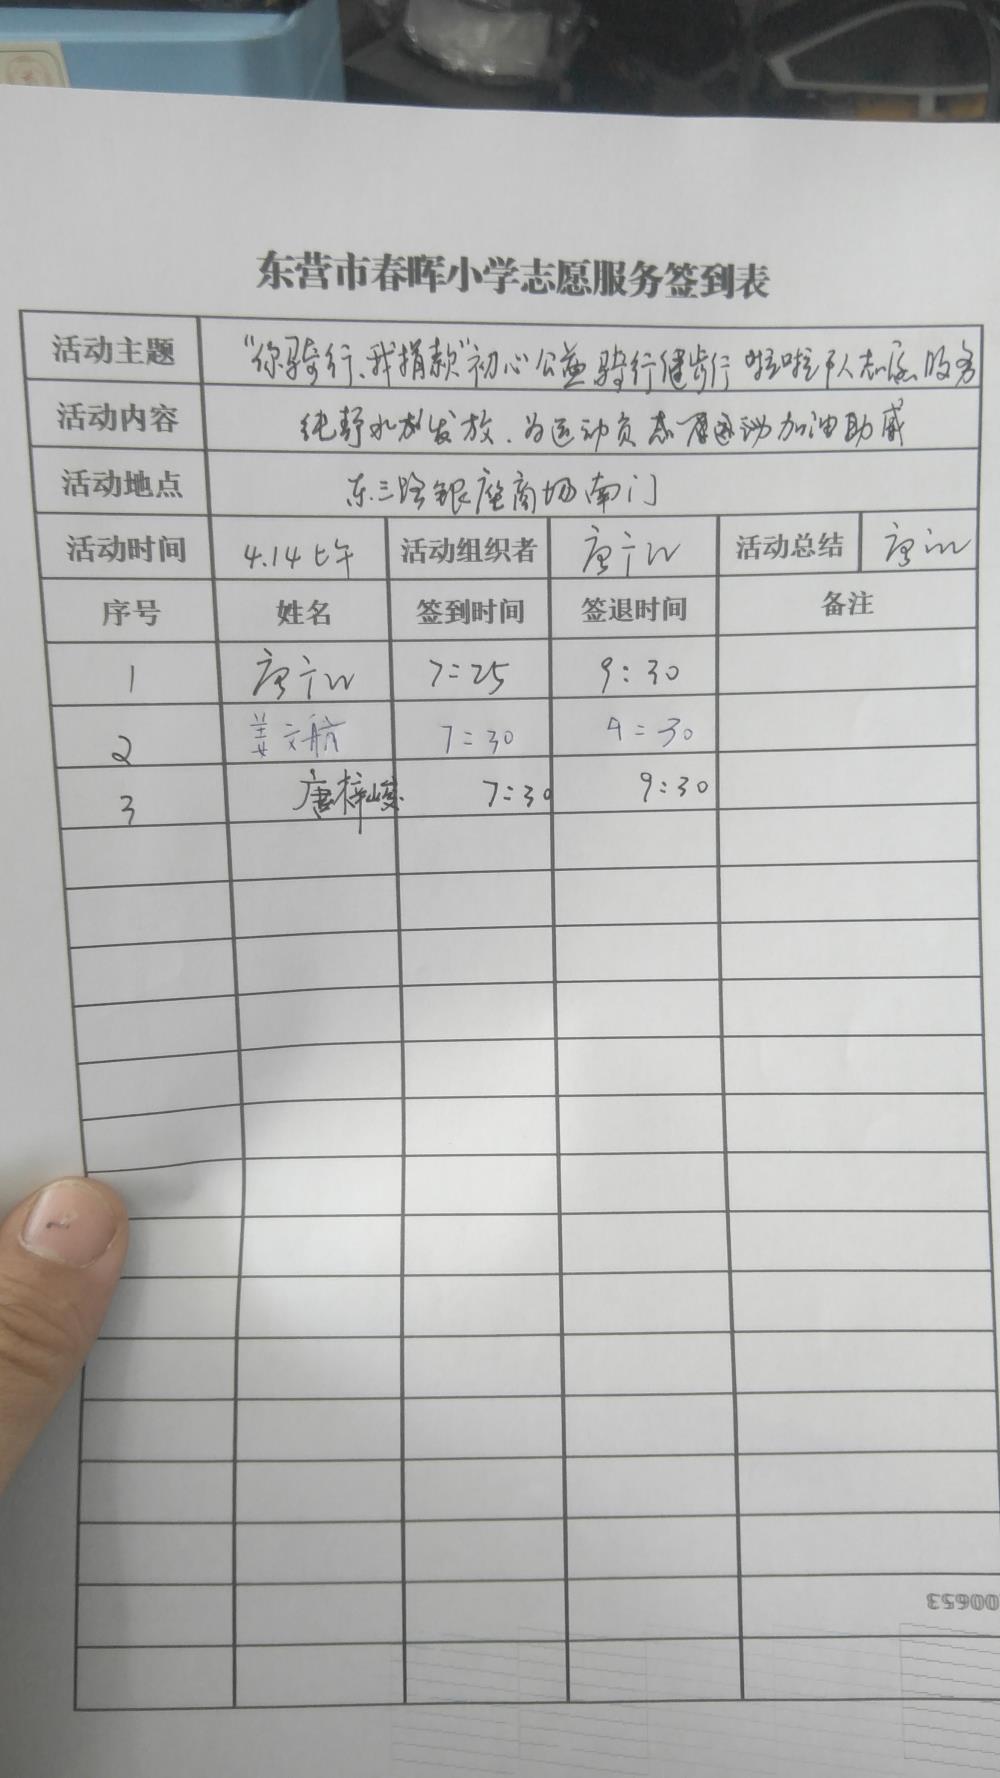 东营市春晖小学志愿服务签到表
活动主题 "你骑行、我捐款"初心公益骑行健步行 啦啦队志愿服务
活动内容 纯静水发放、为运动员志愿运动加油助威
活动地点 东三路银座商场南门
活动时间 4.14上午 活动组织者 唐 活动总结 唐
序号 姓名 签到时间 签退时间 备注
1 唐 7:25 9:30
2 姜文航 7:30 9:30
3 唐梓峻 7:30 9:30
00653